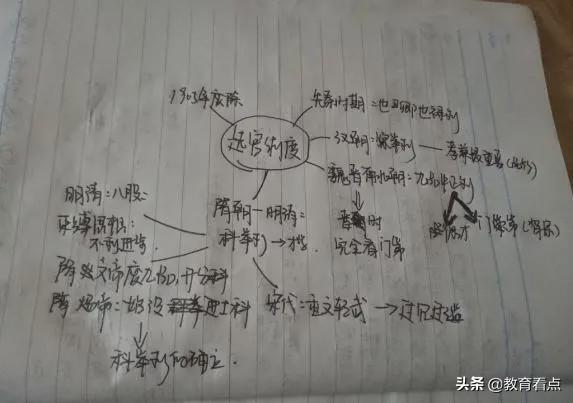 1905年废除
先秦时期:世卿世禄制
选官制度
汉朝:察举制 — 孝廉最重要
魏晋南北朝:九品中正制
晋时
完全看门第
门第
隋朝—明清:
科举制→才学
明清:八股
束缚思想
不利进步
隋文帝废九品,开分科
隋炀帝:始设进士科
科举制的确立.
宋代:重文轻武 → 过冗过滥
头条 @教育看点